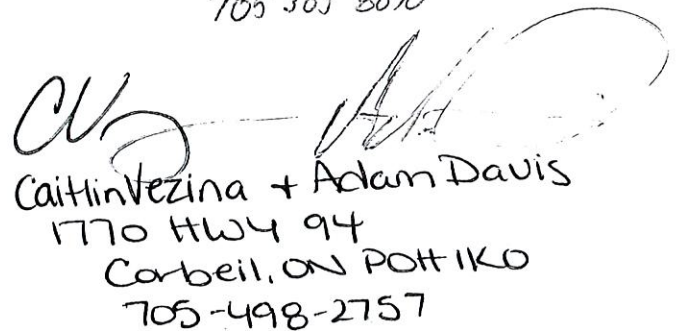 Caitlin Vezina + Adam Davis
1770 HWY 94
Corbeil, ON P0H 1K0
705-498-2757